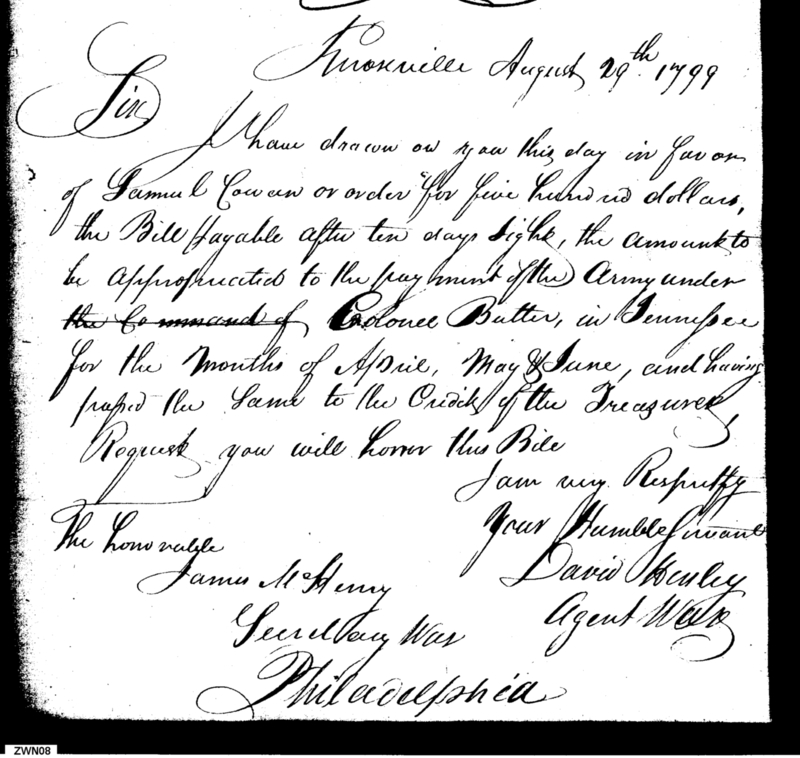 Knoxville August 29th 1799
Sir
I have drawn on you this day in favor
of Samuel Cowan or order for five hundred dollars,
the Bill payable after ten days sight, the amount to
be appropriated to the payment of the Army under
the Command of Colonel Butler, in Tennessee
for the Months of April, May & June, and having
passed the Same to the Credit of the Treasurer,
Request you will honor this Bill
I am very Respectfy
Your Humble Servant
David Henley
Agent War
The honorable
James McHenry
Secretary War
Philadelphia
ZWN08